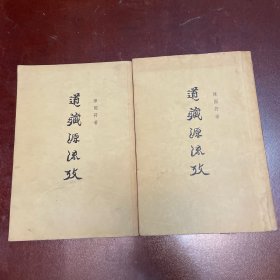 陳國符著
道藏源流攷
陳國符著
道藏源流攷